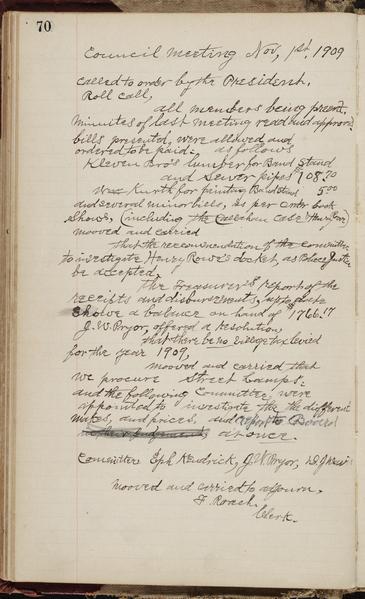 70
Council meeting Nov, 1st, 1909
called to order by the President,
Roll call,
all members being present,
Minutes of last meeting read and approved
bills presented, were allowed and
ordered to be paid. as follows
Kleven Bro's lumber for Band Stand
and Sewer pipes $108.70
Wm Kurth for painting Bandstand 5.00
and several minor bills, as per order book
Shows, (including the case Henry Rowe
mooved and carried
that the recommendation of the committee
to investigate Henry Rowe's docket, as Police Justice
be accepted.
the Treasurer's report of the
receipts and disbursements, up to date
Showe a balance on hand of $1766.17
J. W. Pryor, offered a resolution,
that there be no village tax levied
for the year 1909,
mooved and carried that
we procure Street Lamps.
and the following Committee, were
appointed to investigate the the different
makes, and prices, and report to Board
at once.
Committee Eph Kendrick, J. W. Pryor,
mooved and carried to adjourn.
F. Roach.
Clerk.